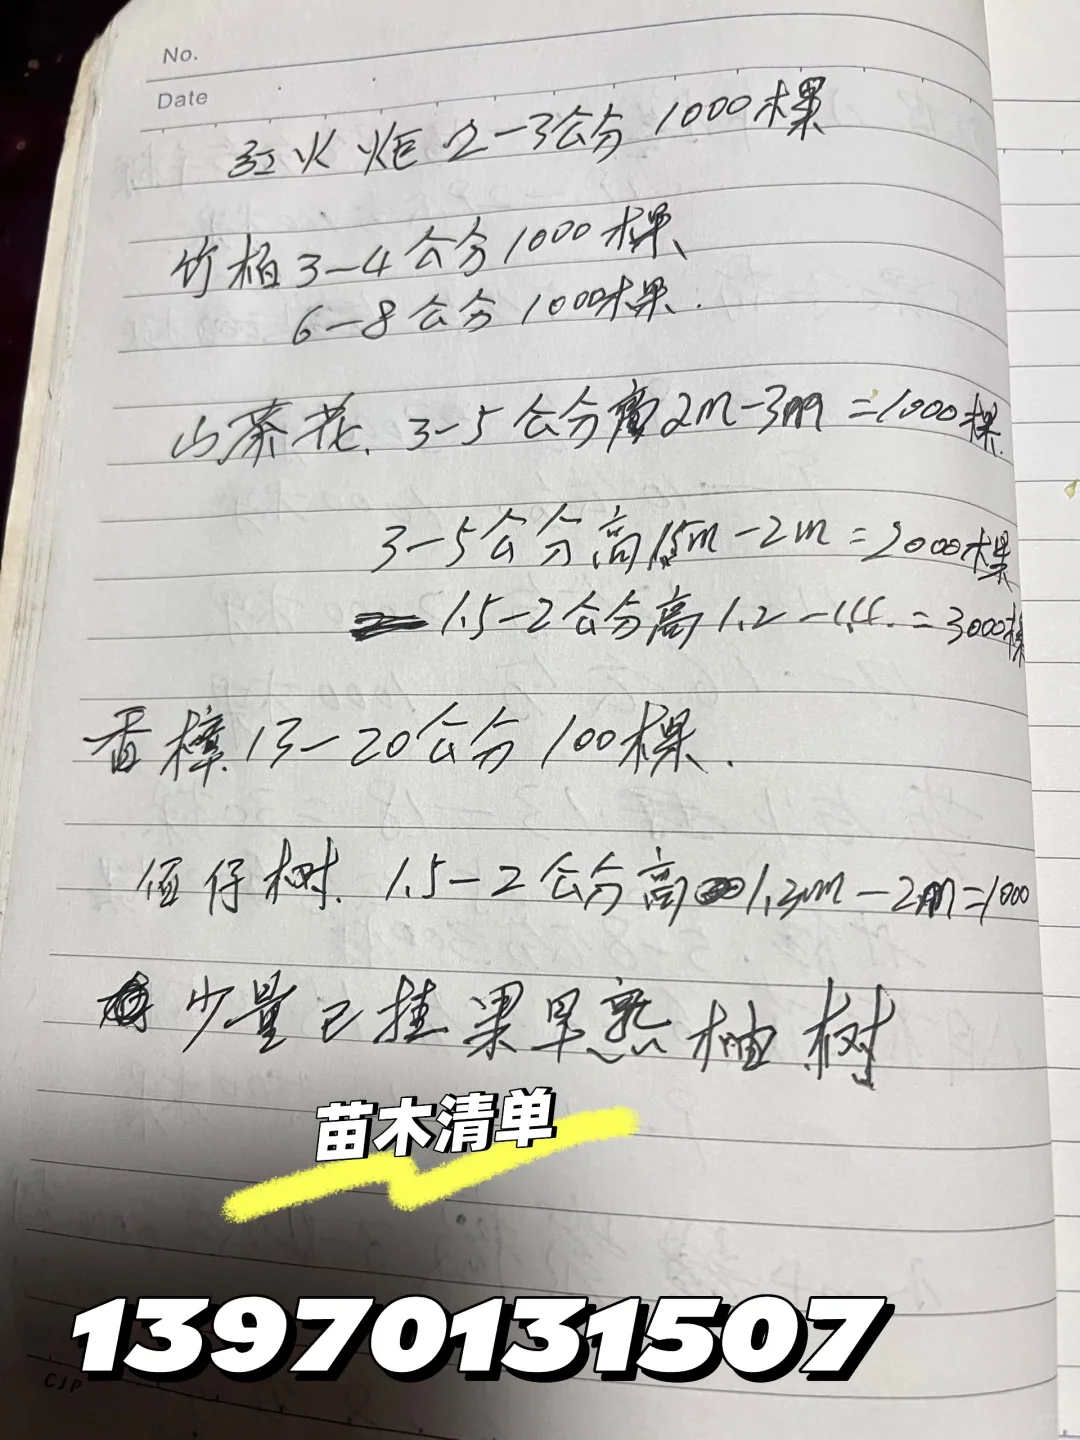 No.
Date
红火炬 2-3公分 1000棵
竹柏3-4公分1000棵、
6-8公分1000棵.
山茶花. 3-5公分高2m-3m=1000棵.
3-5公分高1.5m-2m=2000棵
1.5-2公分高1.2-1.4.=3000棵
香樟.13-20公分100棵.
仔树. 1.5-2公分高1.3m-2m=1000
少量已挂果早熟柚树
苗木清单
13970131507
CJP